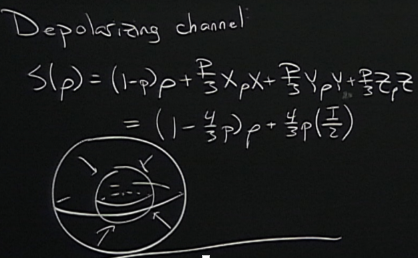 Depolarizing channel
S(ρ) = (1-p)ρ + p/3 XρX + p/3 YρY + p/3 ZρZ
= (1 - 4/3 p)ρ + 4/3 p(I/2)